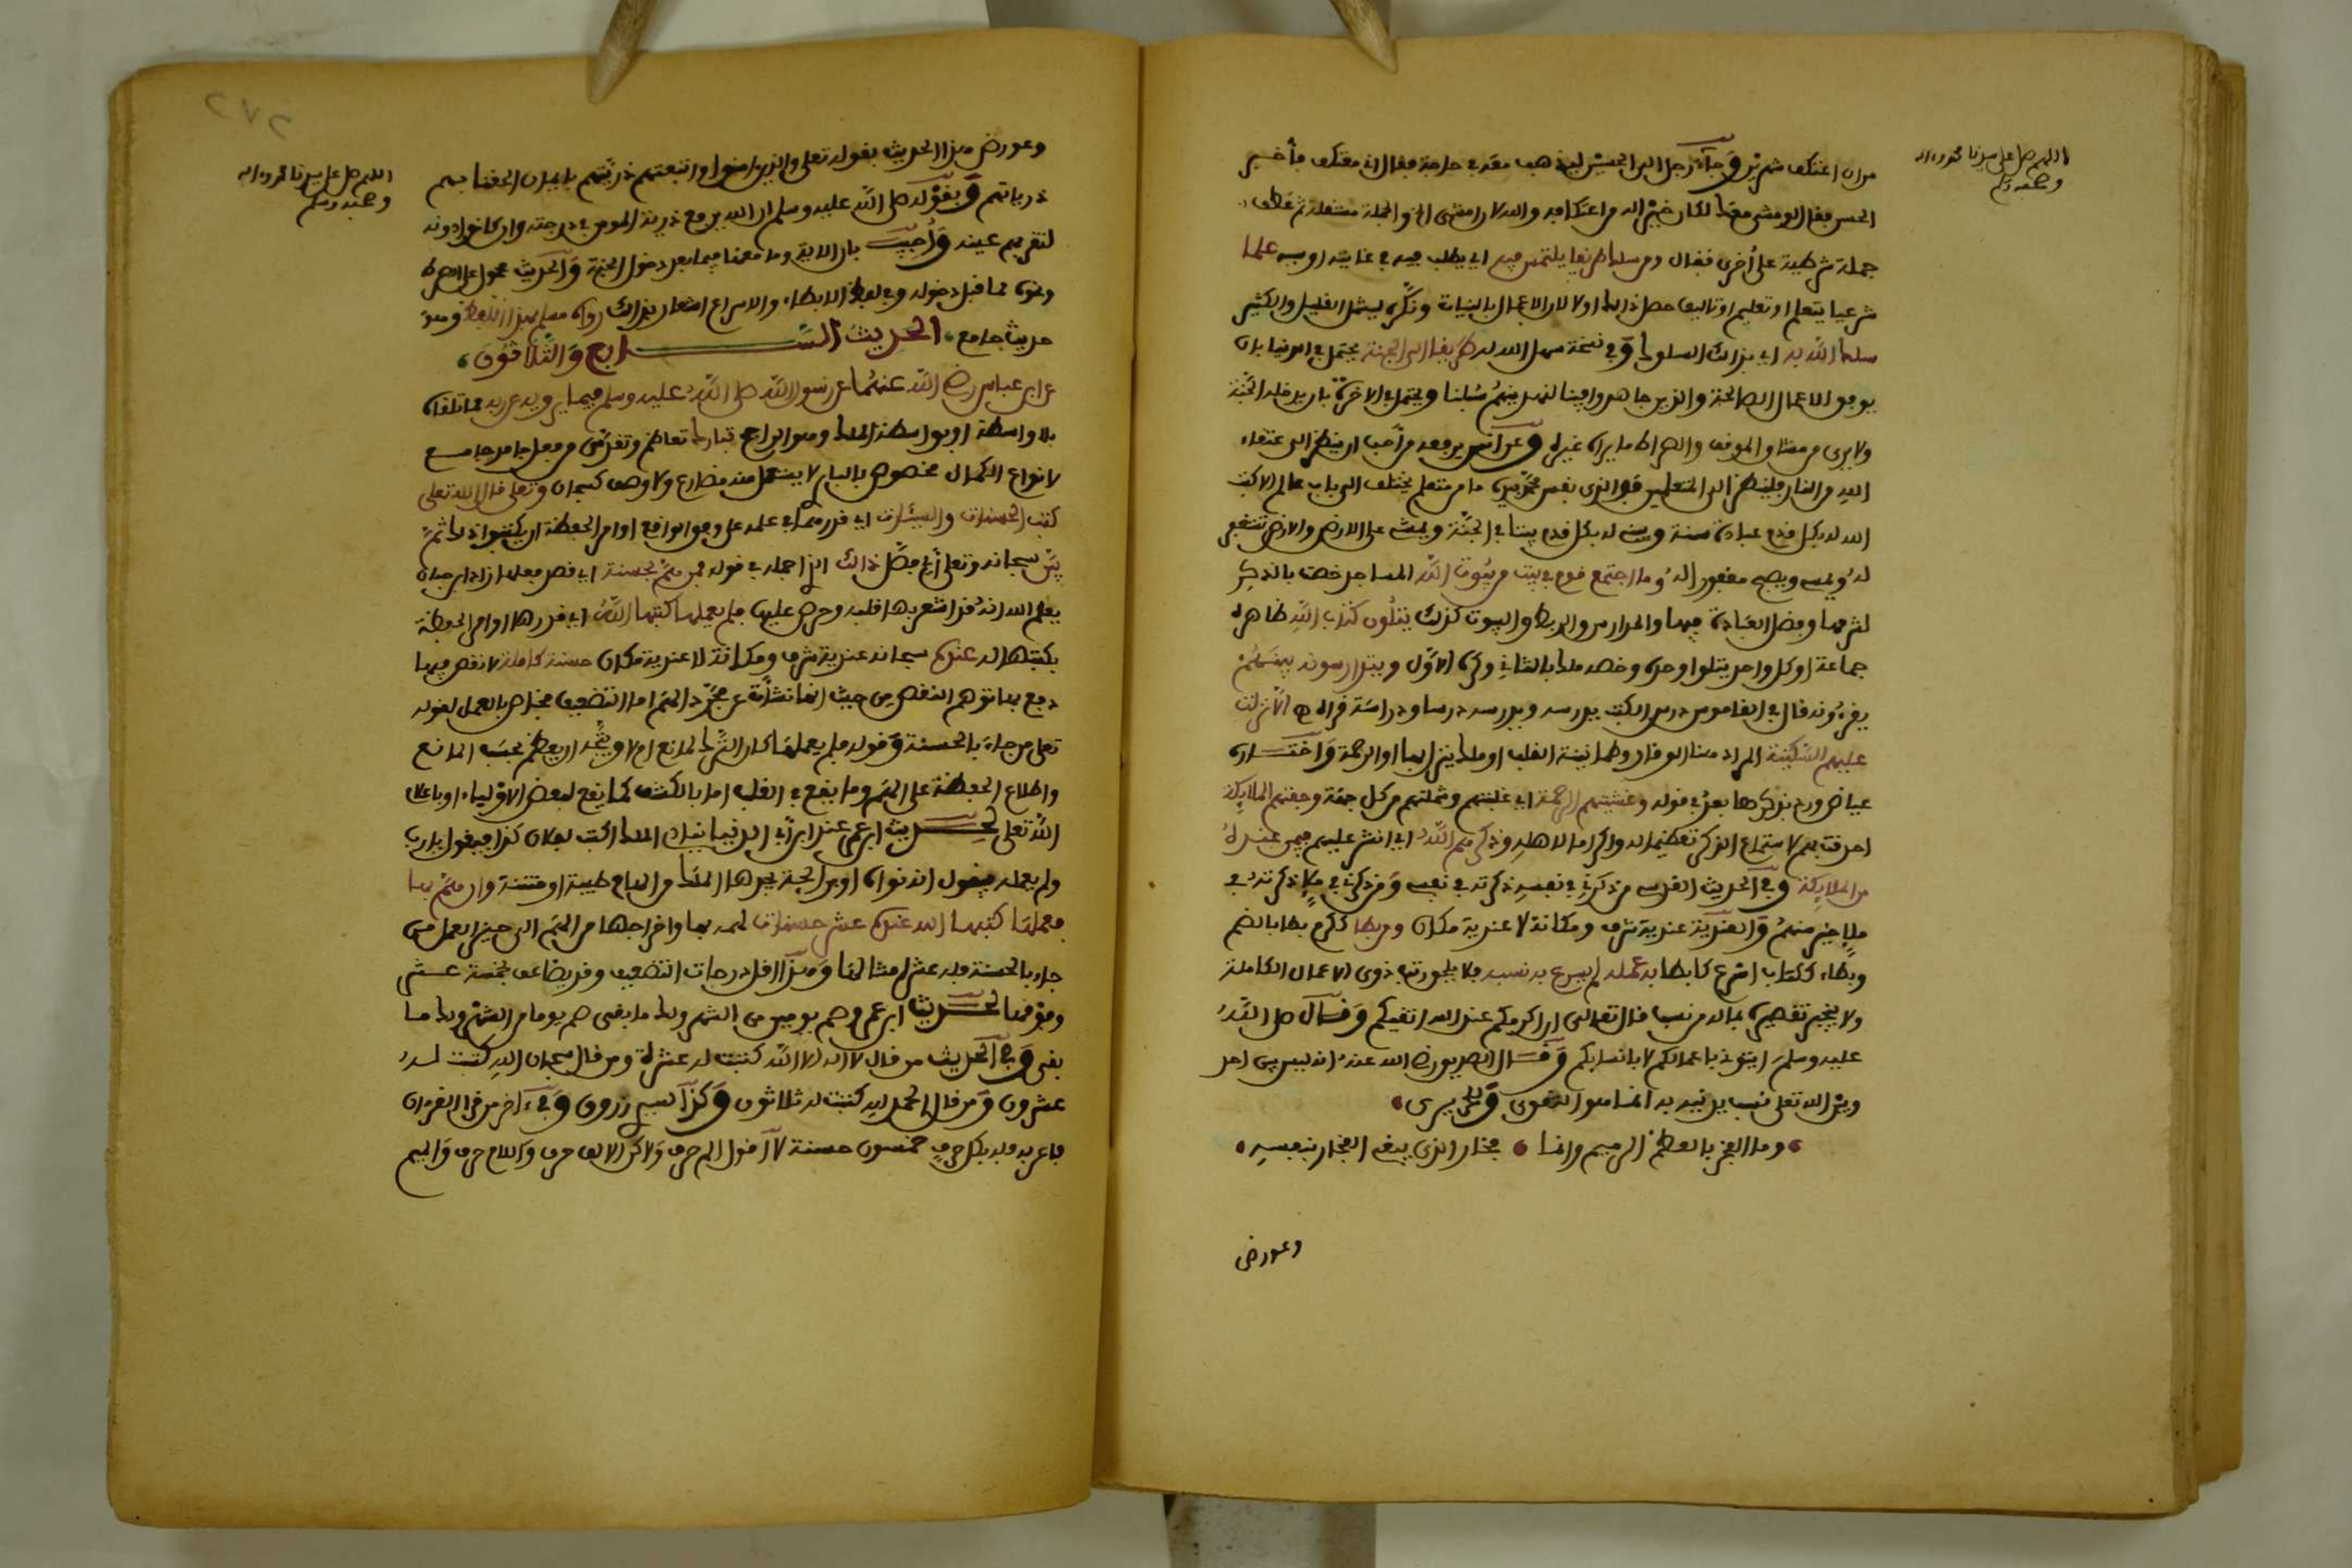 اللهم صل على سيدنا محمد وءاله
وصحبه وسلم
من ان اعتكف شهرين وجاء رجل الى الحسن ليذهب معه في حاجة فقال اني معتكف فأخبر
الحسن فقال لو مشى معك لكان خيرا له من اعتكافه والله لا رد انتهى الخ والجملة مستقلة ثم عطف
جملة شرطية على أخرى فقال ومن سلك طريقا يلتمس فيه اي يطلب فيه في غايته او سببه علما
شرعيا يتعلم او تعليم او تاليف حصل ذالك اولا لان الاعمال بالنيات ونكره ليشمل القليل والكثير
سلك الله به اي بذالك السلوك وفي نسخة سهل الله له طريقا الى الجنة يحتمل في الدنيا بان
يوفق للاعمال الصالحة والذين جاهدوا فينا لنهدينهم سبلنا ويحتمل في الاخرة بان يدخله الجنة
ولا يرى من مشاق الموقف والصراط ما يراه غيره وعن أنس يرفعه من أحب ان ينظر الى عتقاء
الله من النار فلينظر الى المتعلمين فوالذي نفس محمد بيده ما من متعلم يختلف الى باب عالم الا كتب
الله له بكل قدم عبادة سنة وبنى له بكل قدم بيتا في الجنة ويمشي على الارض والارض تستغفر
له ويمسي ويصبح مغفورا له وما اجتمع قوم في بيت من بيوت الله المساجد خصت بالذكر
لشرفها وفضل العبادة فيها والمدارس والربط والبيوت كذلك يتلون كتاب الله ظاهره
جماعة او كل واحد يتلوا وحده وخصه ملك بالثاني وكره الاول ويتدارسونه بينهم
يقرءونه قال في القاموس درس الكتب يدرسه ويدرسه درسا ودراسة قرأه الا نزلت
عليهم السكينة المراد هنا الوقار وطمانينة القلب او ملك ينزل بها او الرحمة واختاره
عياض ورد بذكرها بعد في قوله وغشيتهم الرحمة اي غلبتهم وشملتهم من كل جهة وحفتهم الملايكة
احدقت بهم لاستماع الذكر تعظيما له واكراما لاهله وذكرهم الله اي اثنى عليهم فيمن عنده
من الملايكة وفي الحديث القدسي من ذكرني في نفسه ذكرته في نفسي ومن ذكرني في ملإ ذكرته في
ملإ خير منهم والعندية عندية شرف ومكانة لا عندية مكان ومن بطأ ككرم بطأ بالضم
وبطاء ككتاب اسرع كابطأ به عمله لم يسرع به نسبه فلا يلحق رتبة ذوى الاعمال الكاملة
ولا ينجبر تقصيره بماله من نسب قال تعالى ان اكرمكم عند الله اتقيكم وقال صلى الله
عليه وسلم ايتوني باعمالكم لا بانسابكم وقال البصري رضي الله عنه انه ليس بين احد
وبين الله تعلى نسب يدنيه به انما هو التقوى وللحريري
وما الفخر بالعظم الرميم وانما فخار الذي يبغي الفخار بنفسه
وعورض
٢٧٢
اللهم صل على سيدنا محمد وءاله
وصحبه وسلم
وعورض هذا الحديث بقوله تعلى والذين امنوا واتبعتهم ذريتهم بايمان الحقنا بهم
ذرياتهم وبقوله صلى الله عليه وسلم ان الله يرفع ذرية المومن في درجته وان كانوا دونه
لتقر بهم عينه واجيب بان الاية وما معها فيما بعد دخول الجنة والحديث محمول على الصراط
ونحوه مما قبل دخوله وفي لفظ الابطاء والاسراع اشعار بذالك رواه مسلم بهذا اللفظ وهو
حديث جامع الحديث السابع والثلاثون
عن ابن عباس رضي الله عنهما عن رسول الله صلى الله عليه وسلم فيما يرويه عن ربه مما تلقاه
بلا واسطة او بواسطة الملك وهو الراجح تبارك تعاظم وتقدس وهو فعل جامد جامع
لانواع الكمال مخصوص بالباري لا يستعمل منه مضارع ولا وصف كسبحان وتعلى قال ان الله تعلى
كتب الحسنات والسيئات اي قدرهما في علمه على وفق الواقع او امر الحفظة ان يكتبوا ذلك ثم
بين سبحانه وتعلى أي فصل ذالك الذي اجمله في قوله فمن هم بحسنة اي قصد فعلها زاد ابن حبان
يعلم الله انه قد اشعر بها قلبه وحرص عليها فلم يعملها كتبها الله اي قدرها او امر الحفظة
بكتبها له عنده سبحانه عندية شرف ومكانة لا عندية مكان حسنة كاملة لا نقص فيها
دفع بها توهم النقص من حيث انها نشأت عن مجرد الهم اما التضعيف فمختص بالعمل لقوله
تعلى من جاء بالحسنة وقوله فلم يعملها كان الترك لمانع ام لا ويتجه ان يعظم بحسب المانع
واطلاع الحفظة على الهم وما يقع في القلب اما بالكشف كما يقع لبعض الاولياء او باعلام
الله تعلى لحديث ابن عمر عند ابن أبي الدنيا ينادى الملك اكتب لفلان كذا فيقول يا رب
ولم يعمله فيقول انه نواه او بريح الجنة يجدها الملك من الهام طيبة او منتنة وان هم بها
فعملها كتبها الله عنده عشر حسنات لهمه بها واخراجها من الهم الى حيز العمل من
جاء بالحسنة فله عشر امثالها وهذا اقل درجات التضعيف وقد يضاعف بخمسة عشر
وفوقها لحديث ابن عمر وصم يومين من الشهر ولك ما بقي صم يوما من الشهر ولك ما
بقي وفي الحديث من قال لا اله الا الله كتبت له عشرة ومن قال سبحان الله كتبت له
عشرون ومن قال الحمد لله كتبت له ثلاثون وكذا لسيدي زروق وفي ءاخر من قرا القرءان
فاعربه فله بكل حرف خمسون حسنة لا أقول الم حرف ولاكن الالف حرف واللام حرف والميم